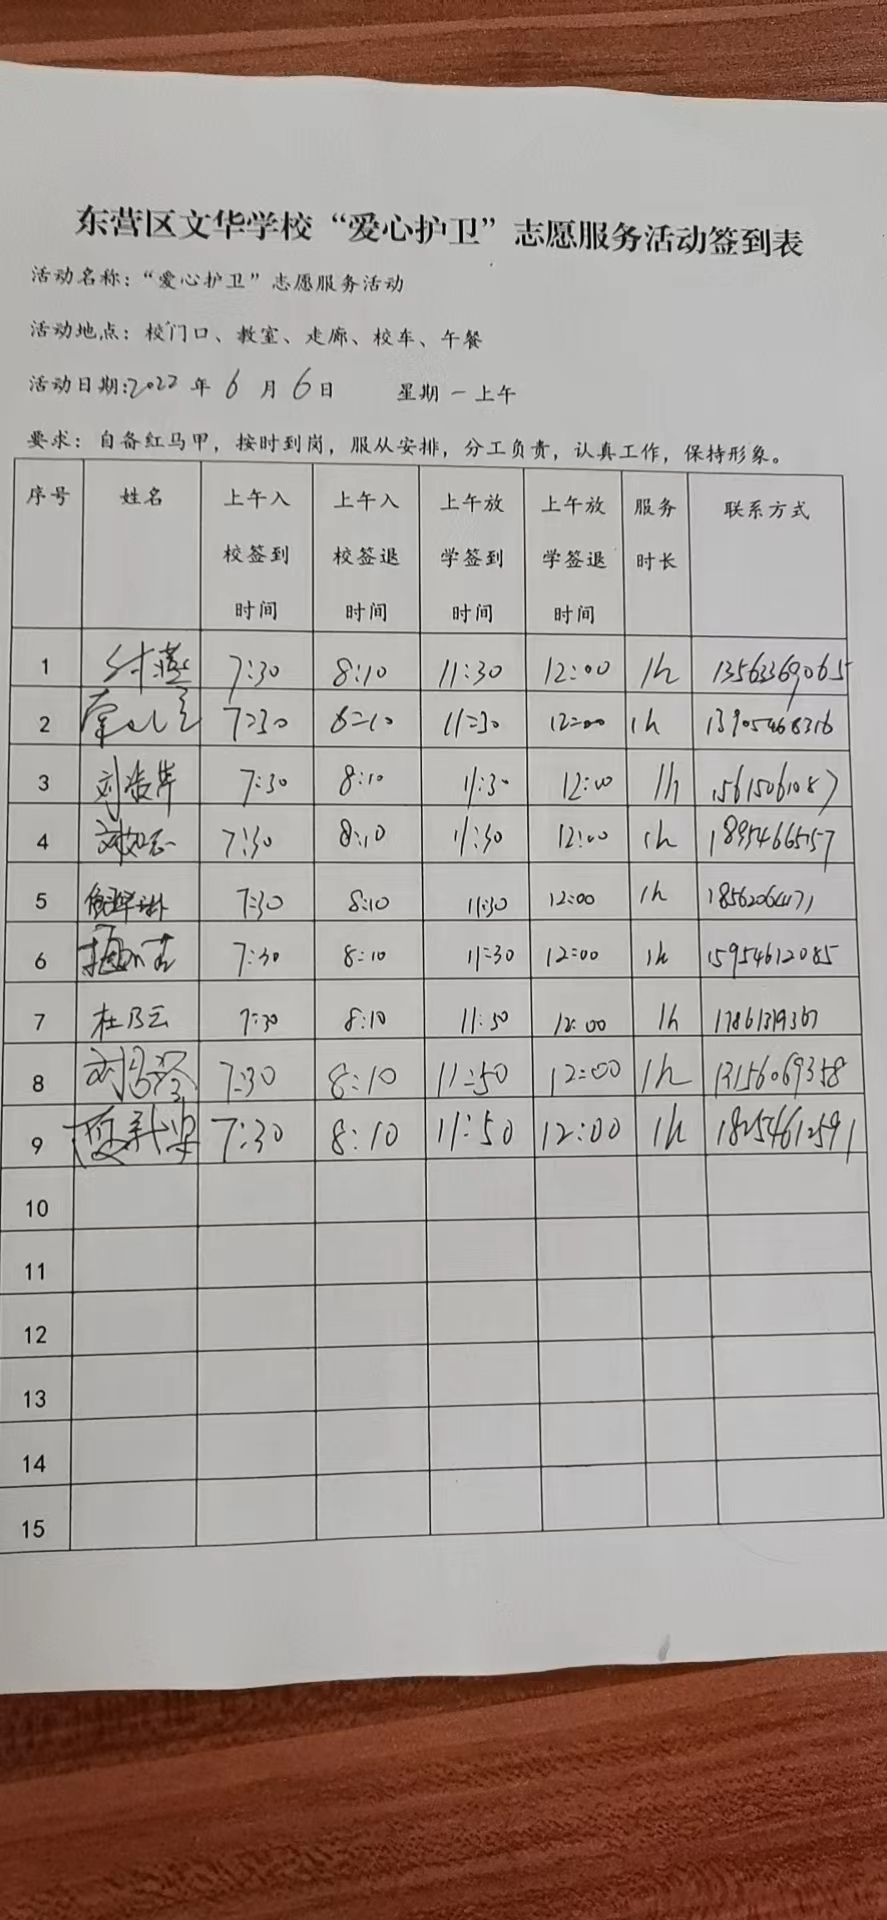 东营区文华学校“爱心护卫”志愿服务活动签到表
活动名称：“爱心护卫”志愿服务活动
活动地点：校门口、教室、走廊、校车、午餐
活动日期:2022 年 6 月 6 日 星期一上午
要求：自备红马甲，按时到岗，服从安排，分工负责，认真工作，保持形象。
序号 姓名 上午入校签到时间 上午入校签退时间 上午放学签到时间 上午放学签退时间 服务时长 联系方式
1 付燕 7:30 8:10 11:30 12:00 1h 13563369065
2 7:30 8:10 11:30 12:00 1h 13905468316
3 7:30 8:10 11:30 12:00 1h 15615061087
4 7:30 8:10 11:30 12:00 1h
5 7:30 8:10 11:30 12:00 1h
6 7:30 8:10 11:30 12:00 1h 15954612085
7 杜乃云 7:30 8:10 11:50 12:00 1h
8 7:30 8:10 11:50 12:00 1h 13156069358
9 7:30 8:10 11:50 12:00 1h 18254612591
10
11
12
13
14
15